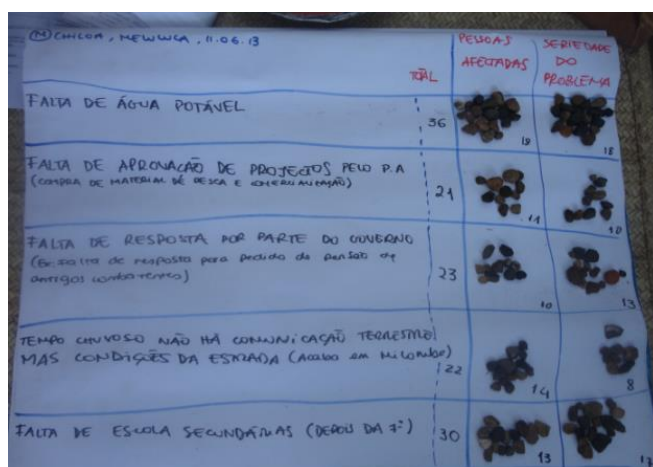 (N) CHILOA, NEWUCA, 11.06.13
TOTAL
PESSOAS AFECTADAS
SERIEDADE DO PROBLEMA
FALTA DE ÁGUA POTÁVEL 36 18 18
FALTA DE APROVAÇÃO DE PROJECTOS PELO P.A 21 11 10
(COMPRA DE MATERIAL DE PESCA E
FALTA DE RESPOSTA POR PARTE DO GOVERNO 23 10 13
(Ex: falta de resposta para pedido de pensão de
antigos combatentes)
TEMPO CHUVOSO NÃO HÁ COMUNICAÇÃO TERRESTRE 22 14 8
MAS CONDIÇÕES DA ESTRADA (Acaba em
FALTA DE ESCOLA SECUNDÁRIAS (DEPOIS DA 7ª) 30 13 17